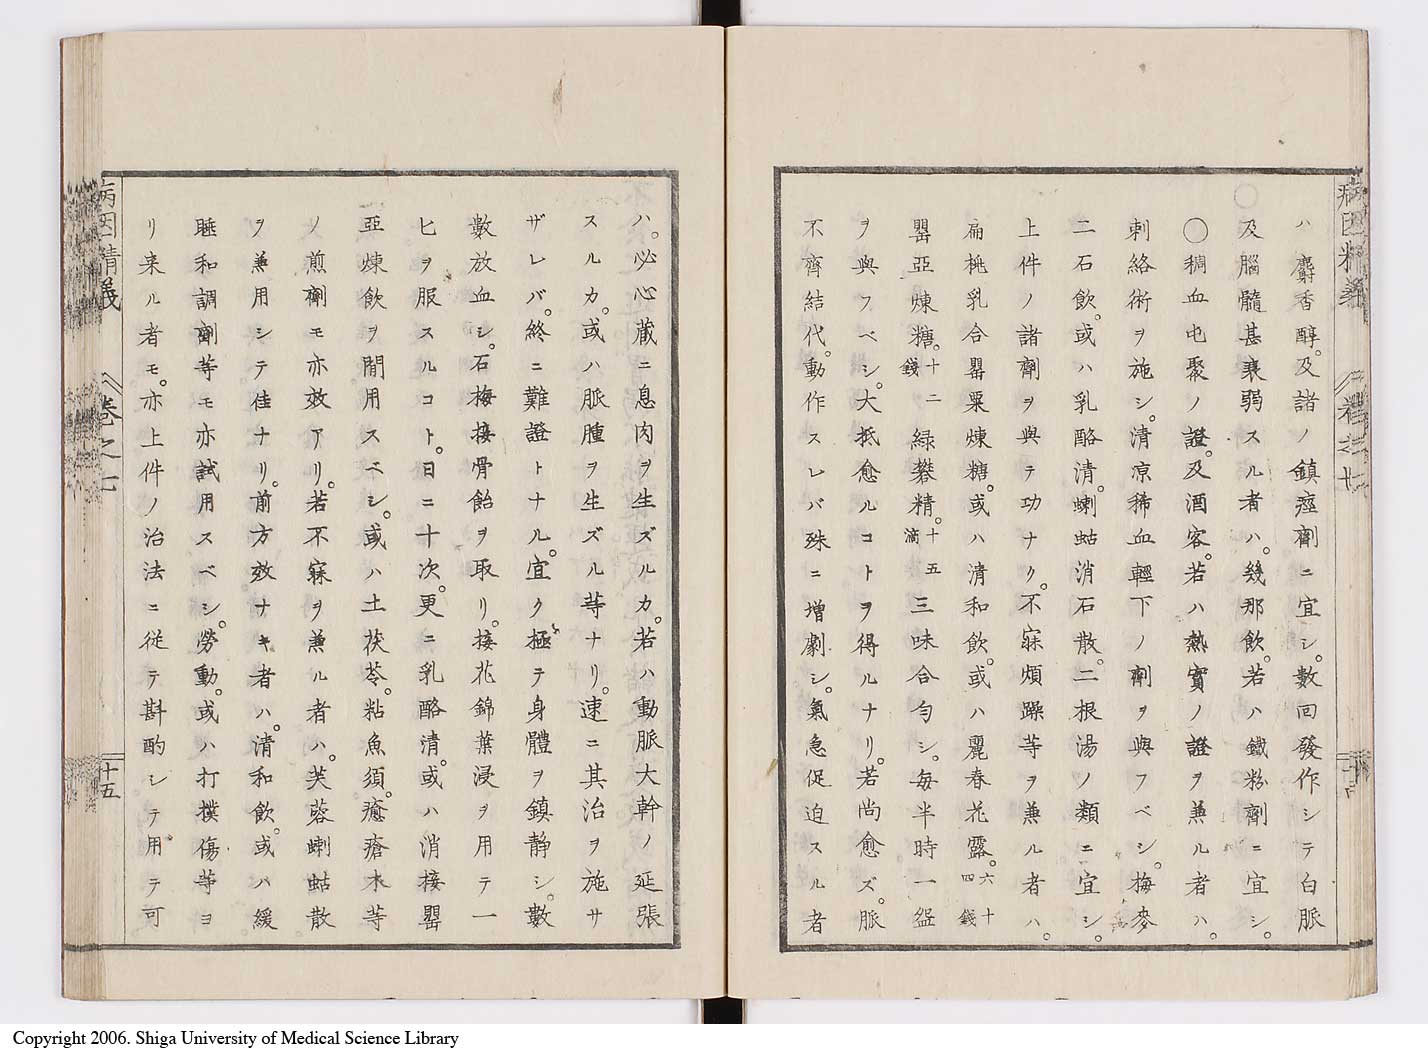 ハ麝香醇。及諸ノ鎮痙劑ニ宜シ。數回發作シテ白脈
及腦髓甚衰弱スル者ハ。幾那飲。若ハ鐵粉劑ニ宜シ。
〇稠血屯聚ノ證。及酒客。若ハ熱實ノ證ヲ兼ル者ハ。
刺絡術ヲ施シ。清凉稀血輕下ノ劑ヲ與フベシ。梅麥
二石飲。或ハ乳酪清。蝲蛄消石散。二根湯ノ類ニ宜シ。
上件ノ諸劑ヲ與テ功ナク。不寐煩躁等ヲ兼ル者ハ。
扁桃乳合罌粟煉糖。或ハ清和飲。或ハ麗春花露。六十四錢
罌亞煉糖。十二錢 緑礬精。十五滴 三味合匀シ。毎半時一盌
ヲ與フベシ。大抵愈ルコトヲ得ルナリ。若尚愈ズ。脈
不齊結代。動作スレバ殊ニ增劇シ。氣急促迫スル者
ハ。必心藏ニ息肉ヲ生ズルカ。若ハ動脈大幹ノ延張
スルカ。或ハ脈腫ヲ生ズル等ナリ。速ニ其治ヲ施サ
ザレバ。終ニ難證トナル。宜ク極テ身體ヲ鎮静シ。數
數放血シ。石梅接骨飴ヲ取リ。接花錦葉浸ヲ用テ一
匕ヲ服スルコト。日ニ十次。更ニ乳酪清。或ハ消接罌
亞煉飲ヲ間用スベシ。或ハ土茯苓。粘魚須。癒瘡木等
ノ煎劑モ亦效アリ。若不寐ヲ兼ル者ハ。芙蓉蝲蛄散
ヲ兼用シテ佳ナリ。前方效ナキ者ハ。清和飲。或ハ緩
睡和調劑等モ亦試用スベシ。勞動。或ハ打撲傷等ヨ
リ来ル者モ。亦上件ノ治法ニ從テ斟酌シテ用テ可
病因精義
卷之七
十五
Copyright 2006. Shiga University of Medical Science Library